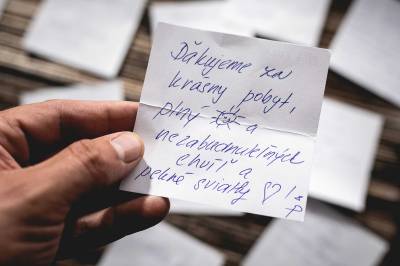 Ďakujeme za
krásny pobyt,
plný ☀ a
nezabudnuteľných
chvíľ a
pekné sviatky ♡!